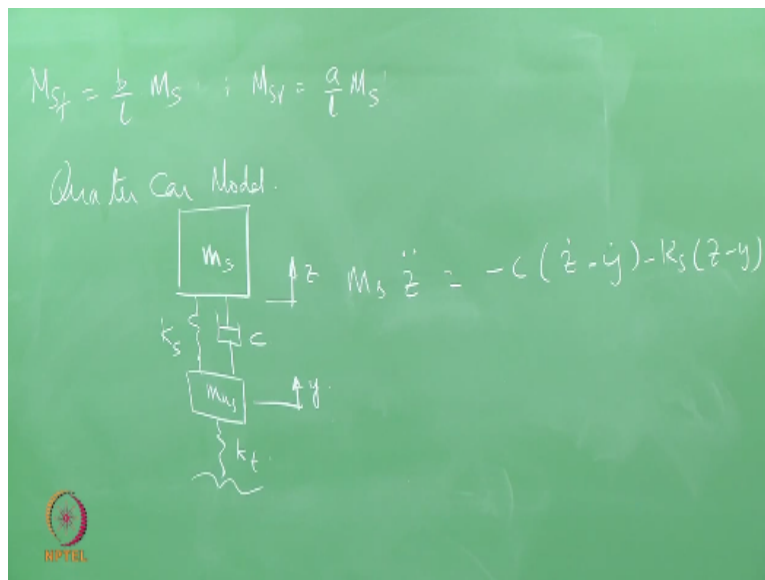 M_Sf = b/l M_S ; M_Sr = a/l M_S
Quarter Car Model.
m_s
z
m_s z̈ = -c(ż - ẏ) - k_s(z - y)
k_s
c
m_us
y
k_t
NPTEL